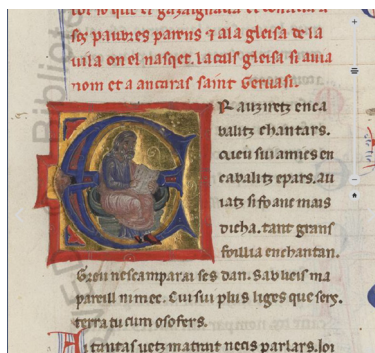 ses paubres parens ⁊ ala gleisa de la
uila on el nasqet. la cals gleisa si auia
nom et a ancaras saint Geruasi.
Er auziretz enca
balitz chantars.
Qieu sui amics en
cabalitz epars. au
iatz si fo anc mais
dicha. tant grans
foillia en chantan.
Greu nescamparai ses dan. Sab ueis ma
pareill ni mec. Cui sui plus liges que sers.
terra tu cum o sofers.
tantas uetz matrait necis parlars.